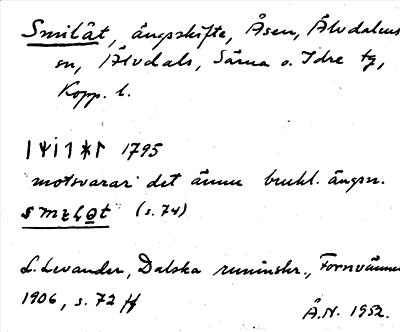 Smilåt, ängsskifte, Åsen, Älvdalens
sn, Älvdals, Särna o. Idre tg,
Kopp. l.
ᛁᛘᛁᛐᚼᛚ 1795
motsvarar det ännu brukl. ängsn.
(s. 74)
L. Levander, Dalska runinskr., Fornvännen
1906, s. 72 ff
Å.N. 1952.